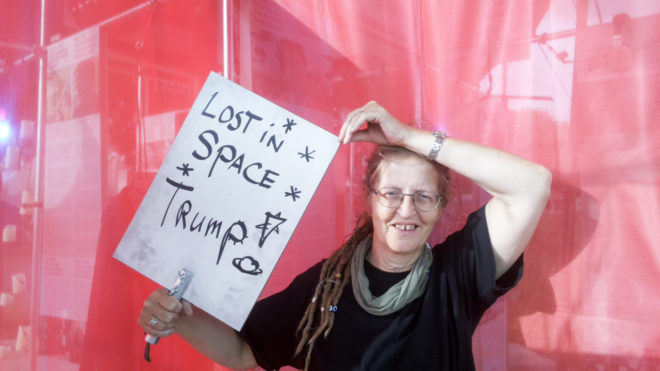 LOST in
SPACE
Trump!